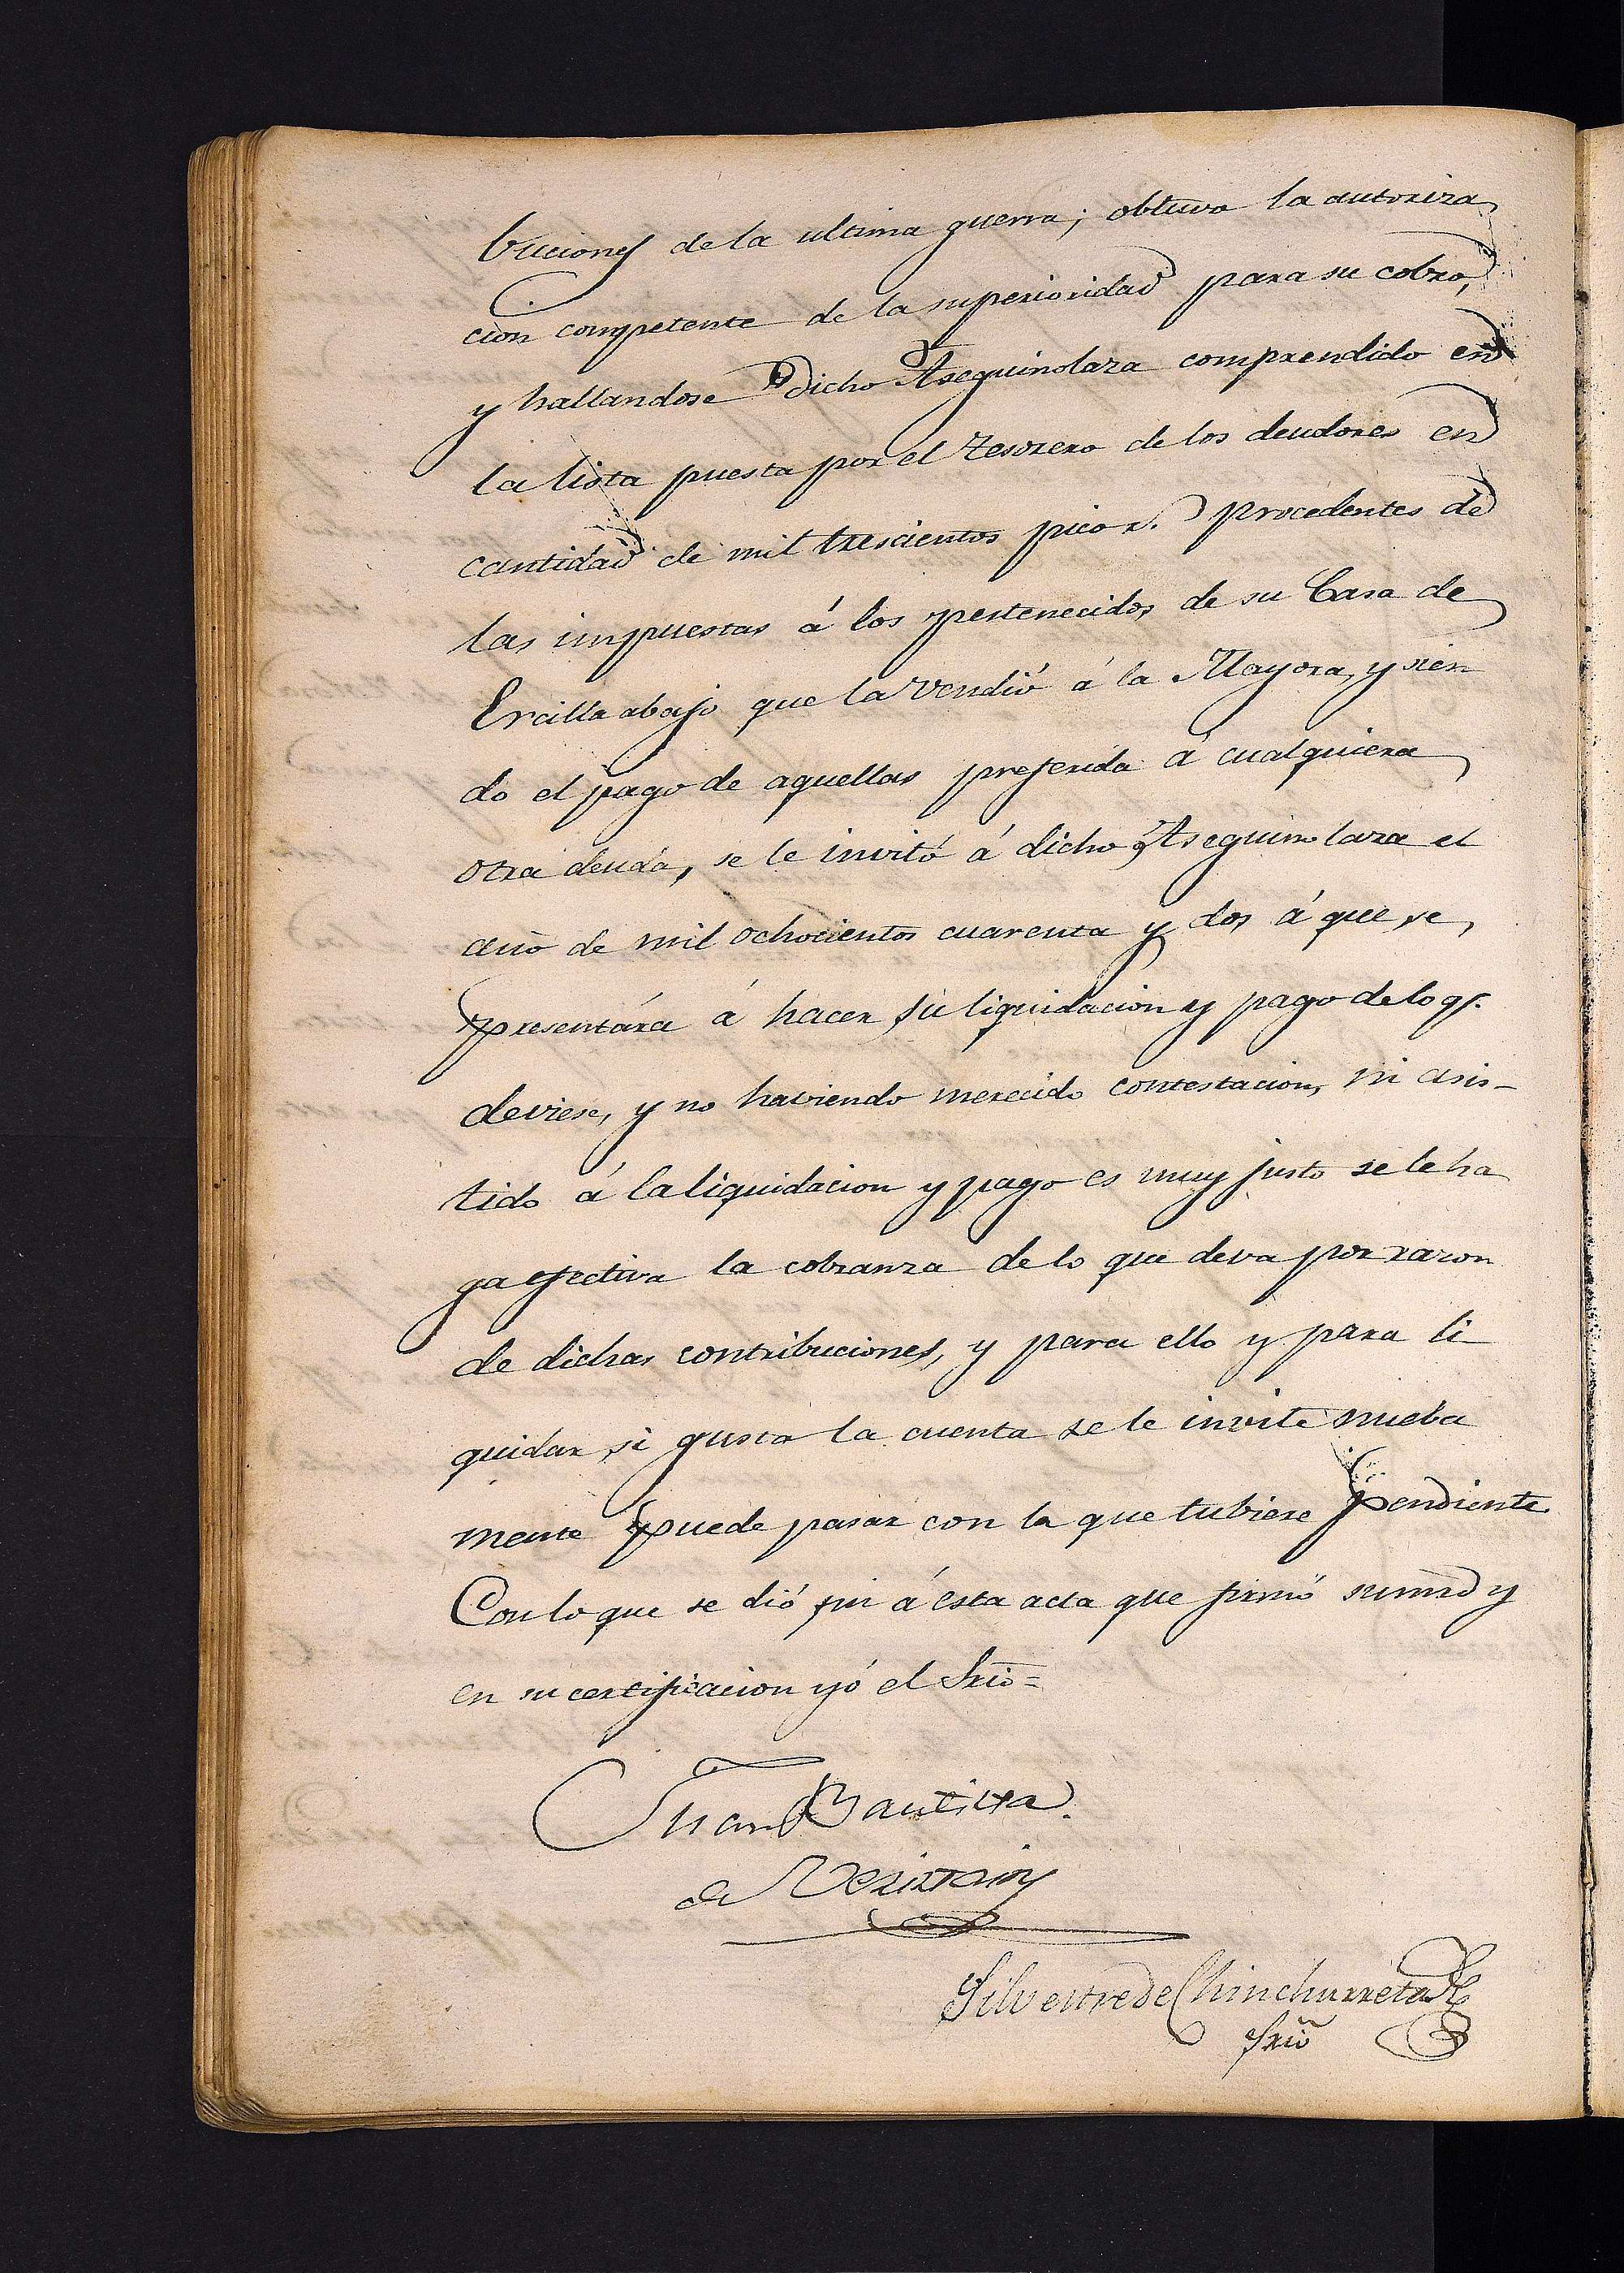 buciones de la ultima guerra; obtuvo la autoriza
cion competente de la superioridad para su cobro,
y hallandose dicho Aseguinolaza comprendido en
la lista puesta por el tesorero de los deudores en
cantidad de mil trescientos pico r. procedentes de
las impuestas á los pertenecidos de su Casa de
Ercilla abajo que la vendió á la Mayora, y sien
do el pago de aquellas preferida á cualquiera
otra deuda, se le invitó á dicho Aseguinolaza el
año de mil ochocientos cuarenta y dos á que se
presentára á hacer su liquidacion y pago de lo q.
deviese, y no haviendo merecido contestacion, ni asis-
tido á la liquidacion y pago es muy justo se le ha
ga efectiva la cobranza de lo que deva por razon
de dichas contribuciones, y para ello y para li
quidar si gusta la cuenta se le invite nueba
mente puede pasar con la que tubiere pendiente
Con lo que se dió fin á esta acta que firmó sumd y
en su certificacion yó el Srio=
Juan Bautista
de
Silvestre de Chinchurreta
Srio